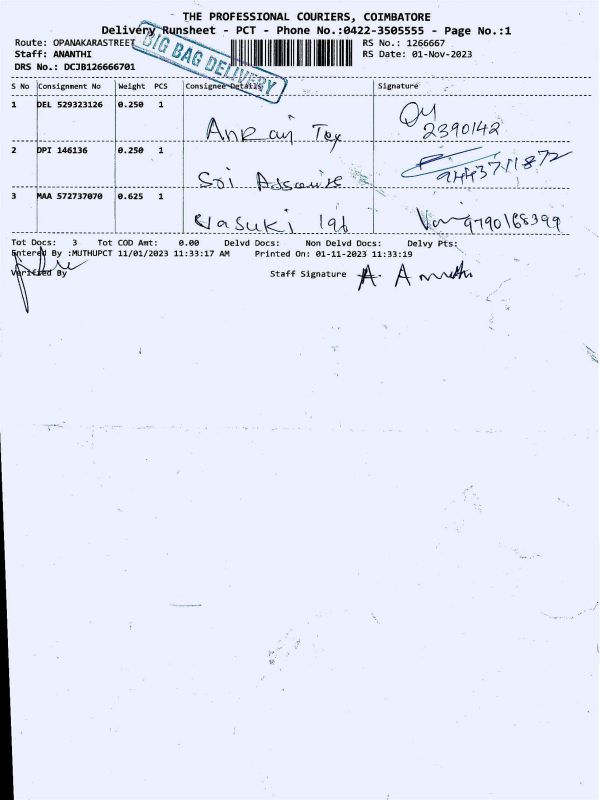 THE PROFESSIONAL COURIERS, COIMBATORE
Delivery Runsheet - PCT - Phone No.:0422-3505555 - Page No.:1
Route: OPANAKARASTREET
RS No.: 1266667
Staff: ANANTHI
RS Date: 01-Nov-2023
DRS No.: DCJB126666701
BIG BAG DELIVERY
S No Consignment No Weight PCS Consignee Details Signature
1 DEL 529323126 0.250 1
Tex
2390142
2 DPI 146136 0.250 1
Sri
9443711872
3 MAA 572737070 0.625 1
Vasuki
9790168399
Tot Docs: 3 Tot COD Amt: 0.00 Delvd Docs: Non Delvd Docs: Delvy Pts:
Entered By :MUTHUPCT 11/01/2023 11:33:17 AM Printed On: 01-11-2023 11:33:19
Verified By Staff Signature A.